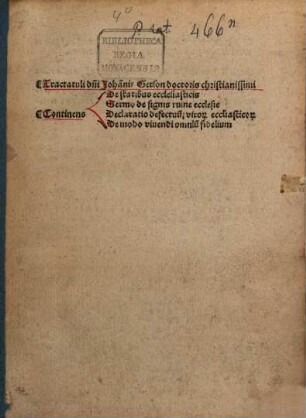 4° P. lat. 466ⁿ
BIBLIOTHECA
REGIA
MONACENSIS
¶Tractatuli dñi Johānis Gerson doctoris christianissimi
De statibus ecclesiasticis
Sermo de signis ruine ecclesie
¶Continens
Declaratio defectuū virorꝝ ecclīasticorꝝ
De modo viuendi omniū fidelium